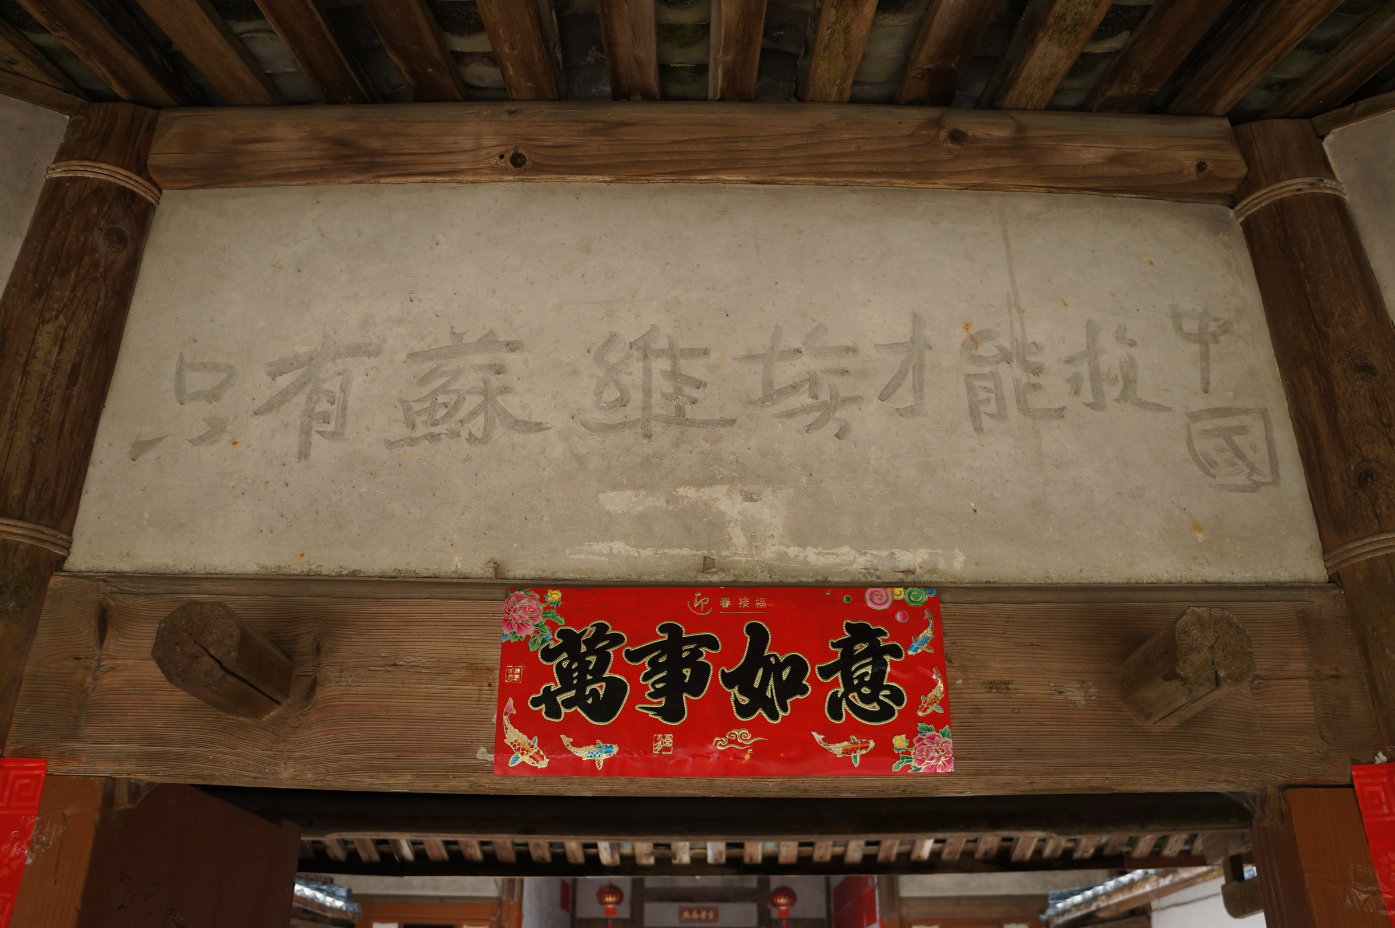 只有蘇維埃才能救中國
春接福
萬事如意